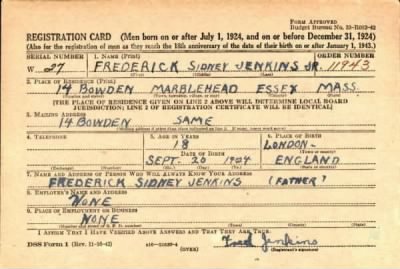 Form Approved
Budget Bureau No. 33-R012-42
REGISTRATION CARD (Men born on or after July 1, 1924, and on or before December 31, 1924)
(Also for the registration of men as they reach the 18th anniversary of the date of their birth on or after January 1, 1943.)
SERIAL NUMBER 1. NAME (Print) ORDER NUMBER
W 27 FREDERICK SIDNEY JENKINS JR. 11943
(First) (Middle) (Last)
2. PLACE OF RESIDENCE (Print)
14 BOWDEN MARBLEHEAD ESSEX MASS.
[THE PLACE OF RESIDENCE GIVEN ON LINE 2 ABOVE WILL DETERMINE LOCAL BOARD
JURISDICTION; LINE 2 OF REGISTRATION CERTIFICATE WILL BE IDENTICAL]
3. MAILING ADDRESS
14 BOWDEN SAME
4. TELEPHONE 5. AGE IN YEARS 6. PLACE OF BIRTH
18 LONDON-
DATE OF BIRTH (Town or county)
SEPT. 20 1924 ENGLAND
(Exchange) (Number) (Mo.) (Day) (Yr.) (State or country)
7. NAME AND ADDRESS OF PERSON WHO WILL ALWAYS KNOW YOUR ADDRESS
FREDERICK SIDNEY JENKINS (FATHER)
8. EMPLOYER'S NAME AND ADDRESS
NONE
9. PLACE OF EMPLOYMENT OR BUSINESS
NONE
I AFFIRM THAT I HAVE VERIFIED ABOVE ANSWERS AND THAT THEY ARE TRUE.
DSS Form 1 (Rev. 11-16-42) (OVER) Fred Jenkins
(Registrant's signature)